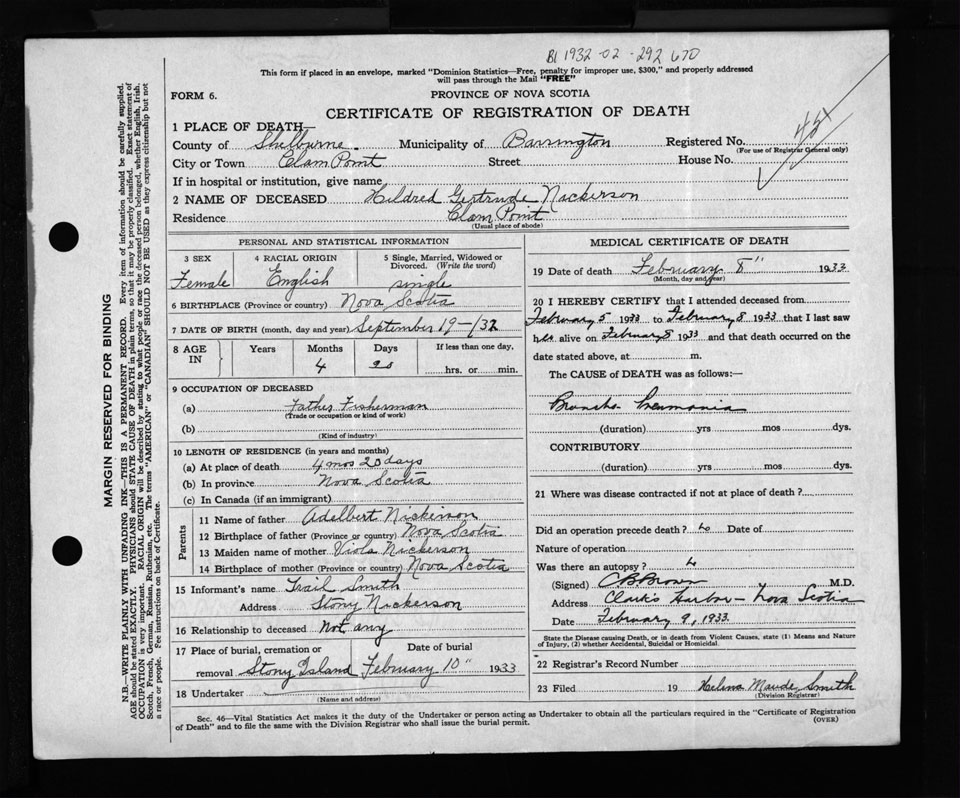 BL 1932-02-292670
This form if placed in an envelope, marked "Dominion Statistics—Free, penalty for improper use, $300," and properly addressed
will pass through the Mail "FREE"
FORM 6.
PROVINCE OF NOVA SCOTIA
CERTIFICATE OF REGISTRATION OF DEATH
1 PLACE OF DEATH
County of Shelburne Municipality of Barrington Registered No.
(For use of Registrar General only)
City or Town Clam Point Street House No.
If in hospital or institution, give name
2 NAME OF DECEASED Hildred Gertrude Nackerson
Residence Clam Point
(Usual place of abode)
PERSONAL AND STATISTICAL INFORMATION
3 SEX 4 RACIAL ORIGIN 5 Single, Married, Widowed or
Divorced. (Write the word)
Female English single
6 BIRTHPLACE (Province or country) Nova Scotia
7 DATE OF BIRTH (month, day and year) September 19-/32
8 AGE IN Years Months Days If less than one day,
4 20 hrs. or min.
9 OCCUPATION OF DECEASED
(a) Father Fisherman
(Trade or occupation or kind of work)
(b)
(Kind of industry)
10 LENGTH OF RESIDENCE (in years and months)
(a) At place of death 4 mos 20 days
(b) In province Nova Scotia
(c) In Canada (if an immigrant)
Parents
11 Name of father Adelbert Nickerson
12 Birthplace of father (Province or country) Nova Scotia
13 Maiden name of mother Viola Nickerson
14 Birthplace of mother (Province or country) Nova Scotia
15 Informant's name Trail Smith
Address Stony Nickerson
16 Relationship to deceased Not any
17 Place of burial, cremation or Date of burial
removal Stony Island February 10" 1933
18 Undertaker
(Name and address)
MEDICAL CERTIFICATE OF DEATH
19 Date of death February 8" 1933
(Month, day and year)
20 I HEREBY CERTIFY that I attended deceased from
February 5 1933 to February 8 1933 that I last saw
her alive on February 8 1933 and that death occurred on the
date stated above, at m.
The CAUSE of DEATH was as follows:—
Broncho Pneumonia
(duration) yrs mos dys.
CONTRIBUTORY
(duration) yrs mos dys.
21 Where was disease contracted if not at place of death?
Did an operation precede death? No Date of
Nature of operation
Was there an autopsy? No
(Signed) C B Brown M.D.
Address Clark's Harbor - Nova Scotia
Date February 9, 1933.
State the Disease causing Death, or in death from Violent Causes, state (1) Means and Nature
of Injury, (2) whether Accidental, Suicidal or Homicidal.
22 Registrar's Record Number
23 Filed 19 Helena Maude Smith
(Division Registrar)
Sec. 46—Vital Statistics Act makes it the duty of the Undertaker or person acting as Undertaker to obtain all the particulars required in the "Certificate of Registration
of Death" and to file the same with the Division Registrar who shall issue the burial permit.
(OVER)
MARGIN RESERVED FOR BINDING
N.B.—WRITE PLAINLY WITH UNFADING INK—THIS IS A PERMANENT RECORD. Every item of information should be carefully supplied.
AGE should be stated EXACTLY. PHYSICIANS should STATE CAUSE OF DEATH in plain terms, so that it may be properly classified. Exact statement of
OCCUPATION is very important. RACIAL ORIGIN will be described by stating to what people or race the deceased person belonged, whether English, Irish,
Scotch, French, German, Russian, Ruthenian, etc. The terms "AMERICAN" or "CANADIAN" SHOULD NOT BE USED as they express citizenship but not
a race or people. See instructions on back of Certificate.